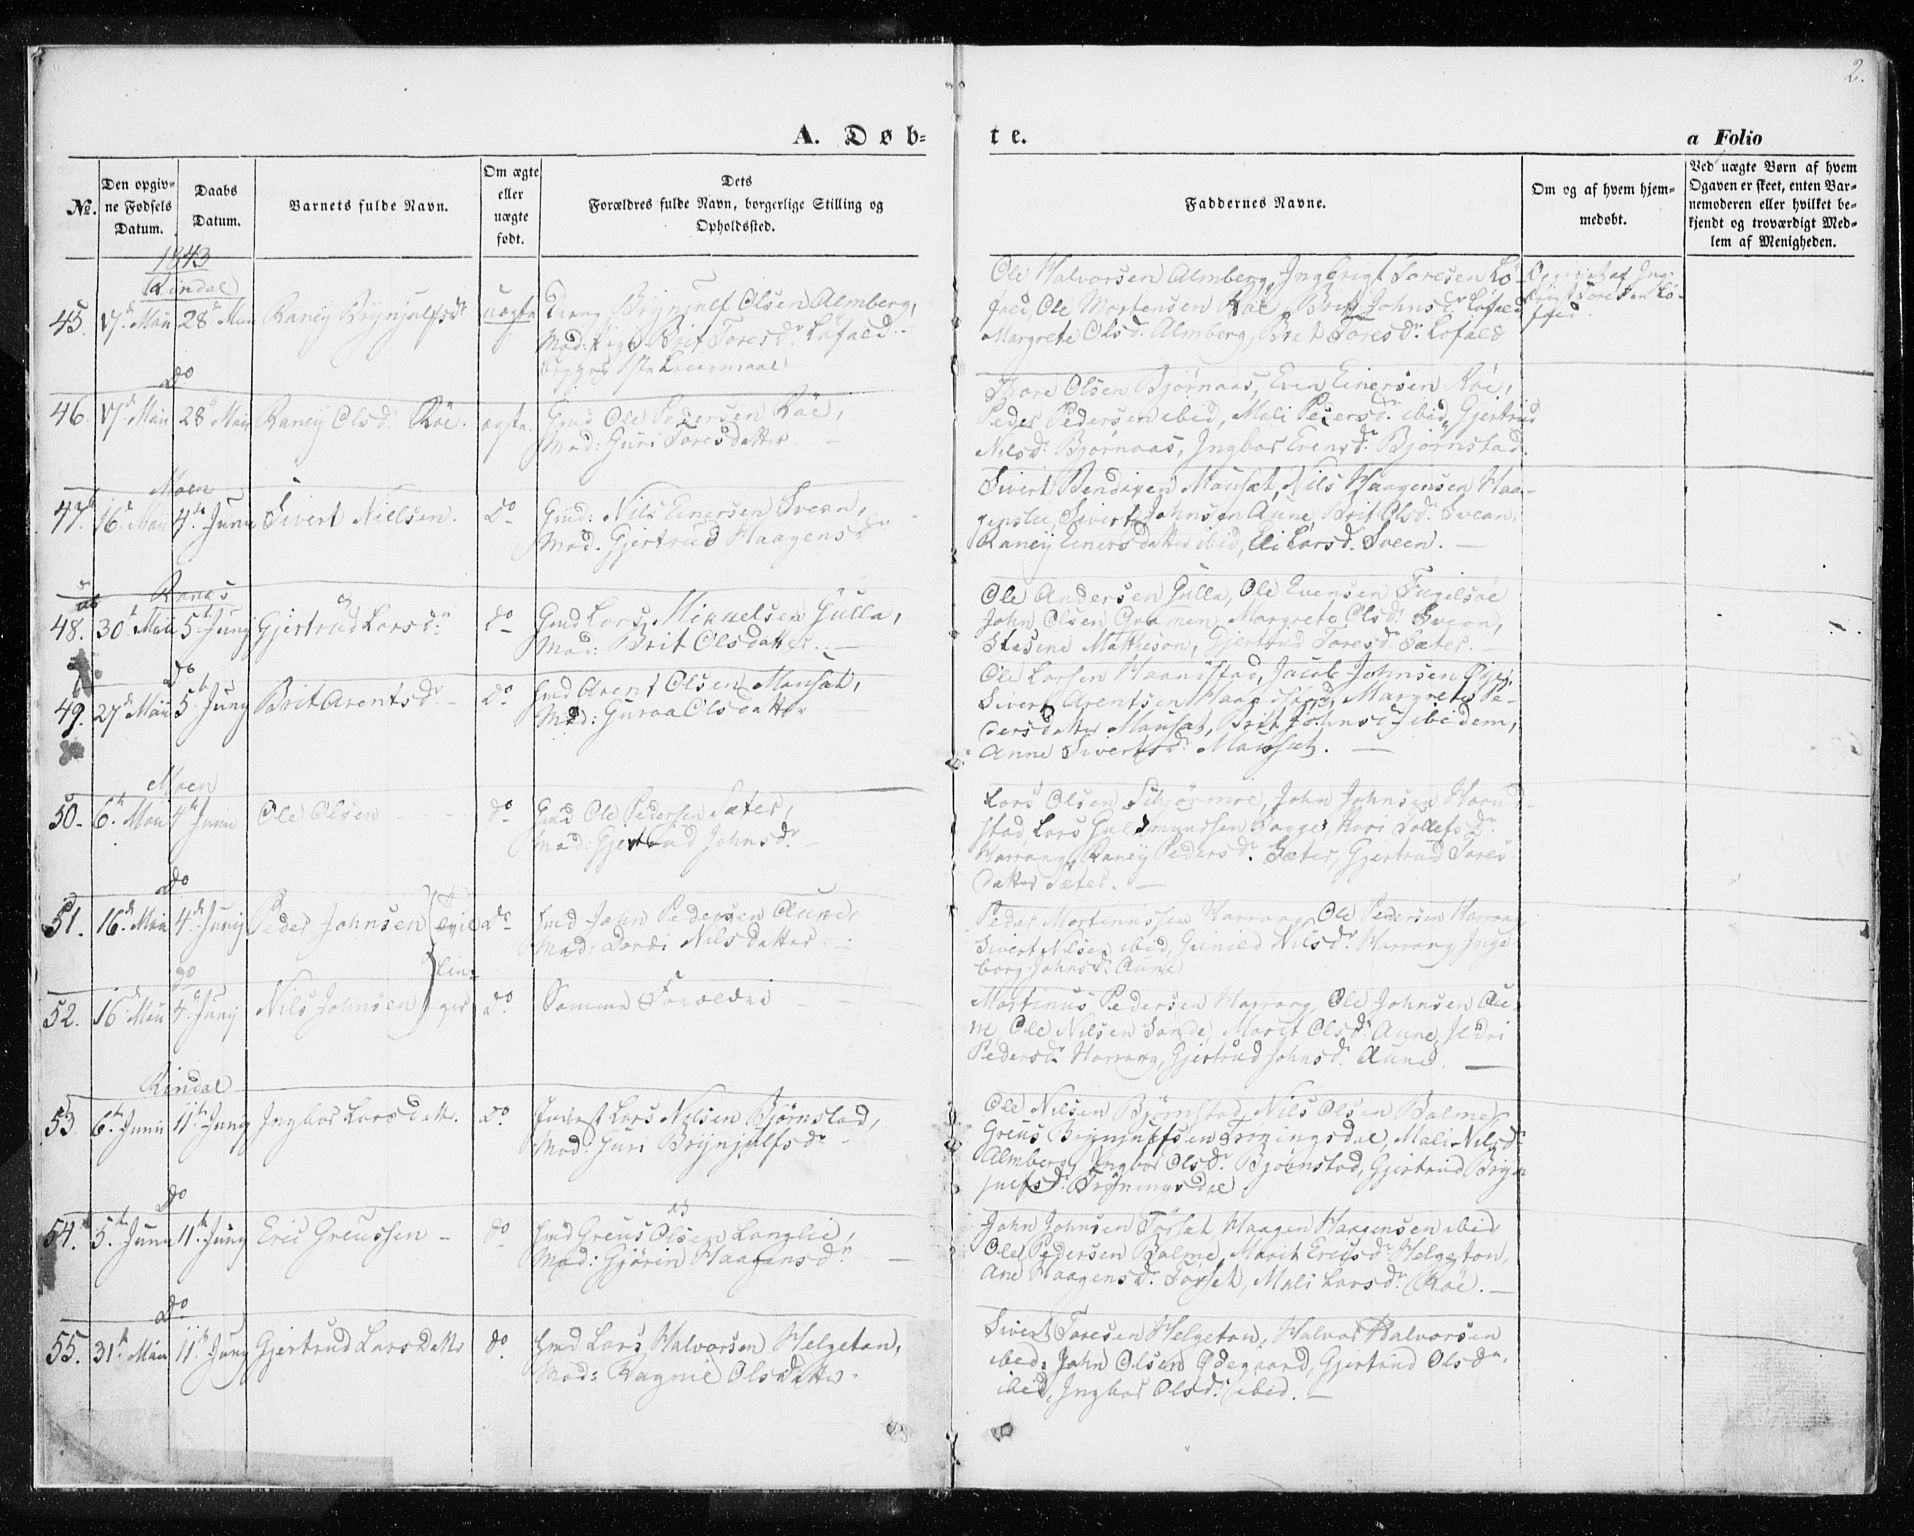 2.
A. Døb-
te.
a Folio
No.
Den opgiv-
ne Fødsels
Datum.
Daabs
Datum.
Barnets fulde Navn.
Om ægte
eller
uægte
født.
Dets
Forældres fulde Navn, borgerlige Stilling og
Opholdssted.
Faddernes Navne.
Om og af hvem hjem-
medøbt.
Ved uægte Børn af hvem
Opgaven er skeet, enten Bar-
nemoderen eller hvilket be-
kjendt og troværdigt Med-
lem af Menigheden.
1843
Rindal
45. 17de Mai 28de Mai Raney Brynjulfsdr uægte
Brynjulf Olsen Almberg,
Mod: Pige Brit Toresdr Løfald.
Ole Halvorsen Almberg, Ingbrigt Toresen Lø-
fald, Ole Mortensen Røe, Brit Johnsdr Løfald
Margrete Olsdr Almberg, Brit Toresdr Løfald
Do
46. 17de Mai 28de Mai Raney Olsdr Røe. ægte.
Gmd Ole Pedersen Røe,
Mod: Guri Toresdatter.
Tore Olsen Bjørnaas, Even Einersen Røe,
Peder Pedersen ibid, Mali Pedersdr ibid, Gjertrud
Nilsdr Bjørnaas, Ingbor Evensdr Bjørnstad.
Moen
47. 16de Mai 4de Juni Sivert Nielsen. do
Gmd: Nils Einersen Sveen,
Mod. Gjertrud Haagensdr
Sivert Bendixen Mausæt, Nils Haagensen Haa-
genslie, Sivert Johnsen Aune, Brit Olsdr Sveen,
Raney Einersdatter ibid, Eli Larsdr Sveen.
Ranes
48. 30te Mai 5te Juny Gjertrud Larsdr do
Gmd Lars Mikkelsen Gulla,
Mod: Brit Olsdatter.
Ole Andersen Gulla, Ole Evensen Fugelsøe
John Olsen Gramen, Margrete Olsdr Sveen,
Stasine Mathison, Gjertrud Toresdr Sæter.
Do
49. 27de Mai 5te Juny Brit Arentsdr do
Gmd Arent Olsen Mausæt,
Mod: Guroa Olsdatter
Ole Larsen Haandstad, Jacob Johnsen Øye,
Sivert Arentsen Haandstad, Margrete Pe-
dersdatter Mausæt, Brit Johnsdr ibidem,
Anne Sivertsdr Mausæt.
Moen
50. 6te Mai 4de Juni Ole Olsen do
Gmd Ole Pedersen Sæter,
Mod: Gjertrud Johnsdr
Lars Olsen Schjørmoe, John Johnsen Haand-
stad, Lars Guldmundsen Bagge, Kari Tollefsdr
Harrang, Raney Pedersdr Sæter, Gjertrud Tores-
datter Sæter.
Do
51. 16de Mai 4de Juny Peder Johnsen do
Gmd John Pedersen Aune,
Mod: Dordi Nilsdatter.
Peder Martinussen Harrang, Ole Pedersen Harrang
Sivert Nilsen ibid, Gunild Nilsdr Harrang, Inge-
borg Johnsdr Aune
Do
52. 16de Mai 4de Juny Nils Johnsen do
Samme Forældre
Martinus Pedersen Harrang, Ole Johnsen Au-
ne, Ole Nilsen Sande, Marit Olsdr Aune,
Pedersdr Harrang, Gjertrud Johnsdr Aune.
Rindal
53. 6te Juni 11te Juny Ingbor Larsdatter. do
Inderst Lars Nilsen Bjørnstad,
Mod: Guri Brynjulfsdr
Ole Nilsen Bjørnstad, Nils Olsen Balme,
Greus Brynjulfsen Trøningsdal, Mali Nilsdr
Almberg, Ingbor Olsdr Bjørnstad, Gjertrud Bryn-
julfsdr Trøningsdal
Do
54. 5te Juni 11te Juny Eric Greussen do
Gmd Greus Olsen Langlie,
Mod: Gjørin Haagensdr
John Johnsen Førset, Haagen Haagensen ibid
Ole Pedersen Balme, Marit Ericsdr Helgeton,
Ane Haagensdr Førset, Mali Larsdr Røe.
Do
55. 31te Mai 11te Juny Gjertrud Larsdatter do
Gmd Lars Halvorsen Helgeton,
Mod: Ragnil Olsdatter.
Sivert Toresen Helgeton, Halvor Halvorsen
ibid, John Olsen Ødegaard, Gjertrud Olsdr
ibid, Ingbor Olsdr ibid.